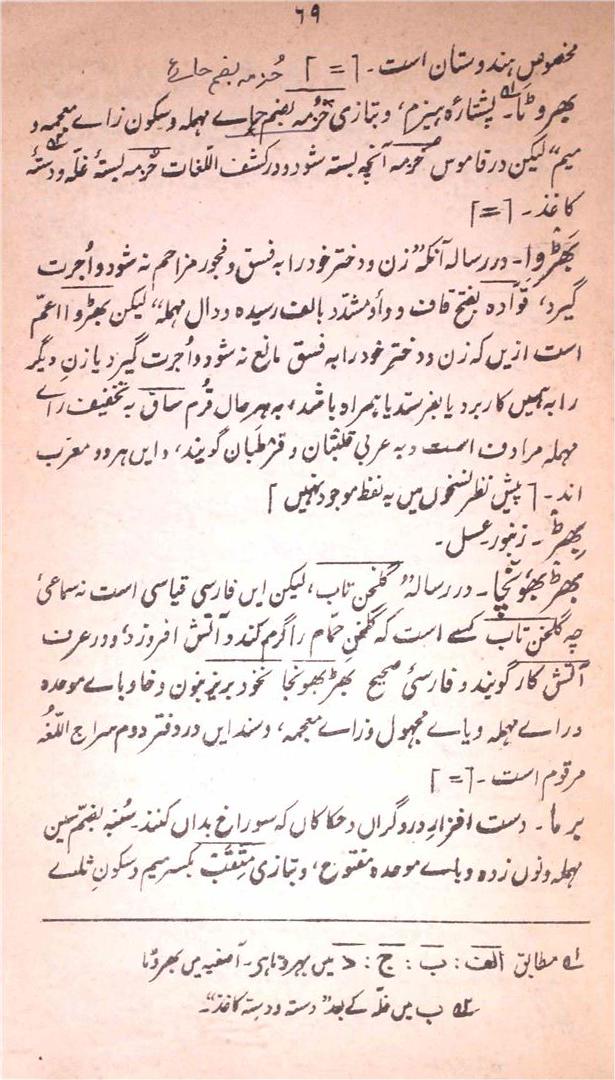 ۶۹
مخصوص ہندوستان است۔ [=] حُزمہ بضم حاے
بھروٹا۔ پشتارۂ ہیزم، و بتازی حُزمہ بضم حاے مہملہ و سکون زاے معجمہ و
میم“ لیکن در قاموس حزمہ آنچہ بستہ شود و در کشف اللّغات حُزمہ بستۂ غلّہ و دستۂ
کاغذ۔ [=]
بَھڑوا۔ در رسالہ آنکہ ”زن و دختر خود را بہ فسق و فجور مزاحم نہ شود و اُجرت
گیرد، قوّادہ بفتح قاف و واو مشدّد بالف رسیدہ و دال مہملہ“ لیکن بھڑوا اعمّ
است ازیں کہ زن و دختر خود را بہ فسق مانع نہ شود و اُجرت گیرد یا زنِ دیگر
را بہ ہمیں کار برد یا بفرستد یا ہمراہ باشد، بہر حال قُرم ساق بہ تخفیف راے
مہملہ مرادف است و بہ عربی قلتبان و قرطبان گویند، و ایں ہر دو معرّب
اند۔ [پیش نظر نسخوں میں یہ لفظ موجود نہیں]
بِھڑ۔ زنبور عسل۔
بھڑ بھونجا۔ در رسالہ ”گلخن تاب، لیکن ایں فارسی قیاسی است نہ سماعی
چہ گلخن تاب کسے است کہ گلخن حمّام را گرم کند و آتش افروزد، و در عرف
آتش کار گویند و فارسیٔ صحیح بھڑ بھونجا نخود بریز بنون و خا و باے موحدہ
و راے مہملہ و یاے مجہول و زاے معجمہ، و سند ایں در دفتر دوم سراج اللّغہ
مرقوم است۔ [=]
برما۔ دست افزارِ درودگراں و حکاکاں کہ سوراخ بداں کنند۔ سُنبہ بضمّ سین
مہملہ و نوں زدہ و باے موحدہ مفتوح، و بتازی مِثقب بکسر میم و سکونِ ثاے
۱ مطابق الف: ب: ج: د میں بھروتا ہی۔ آصفیہ میں بھروٹا
۲ ب میں غلّہ کے بعد ”دستہ و دستہ کاغذ“۔